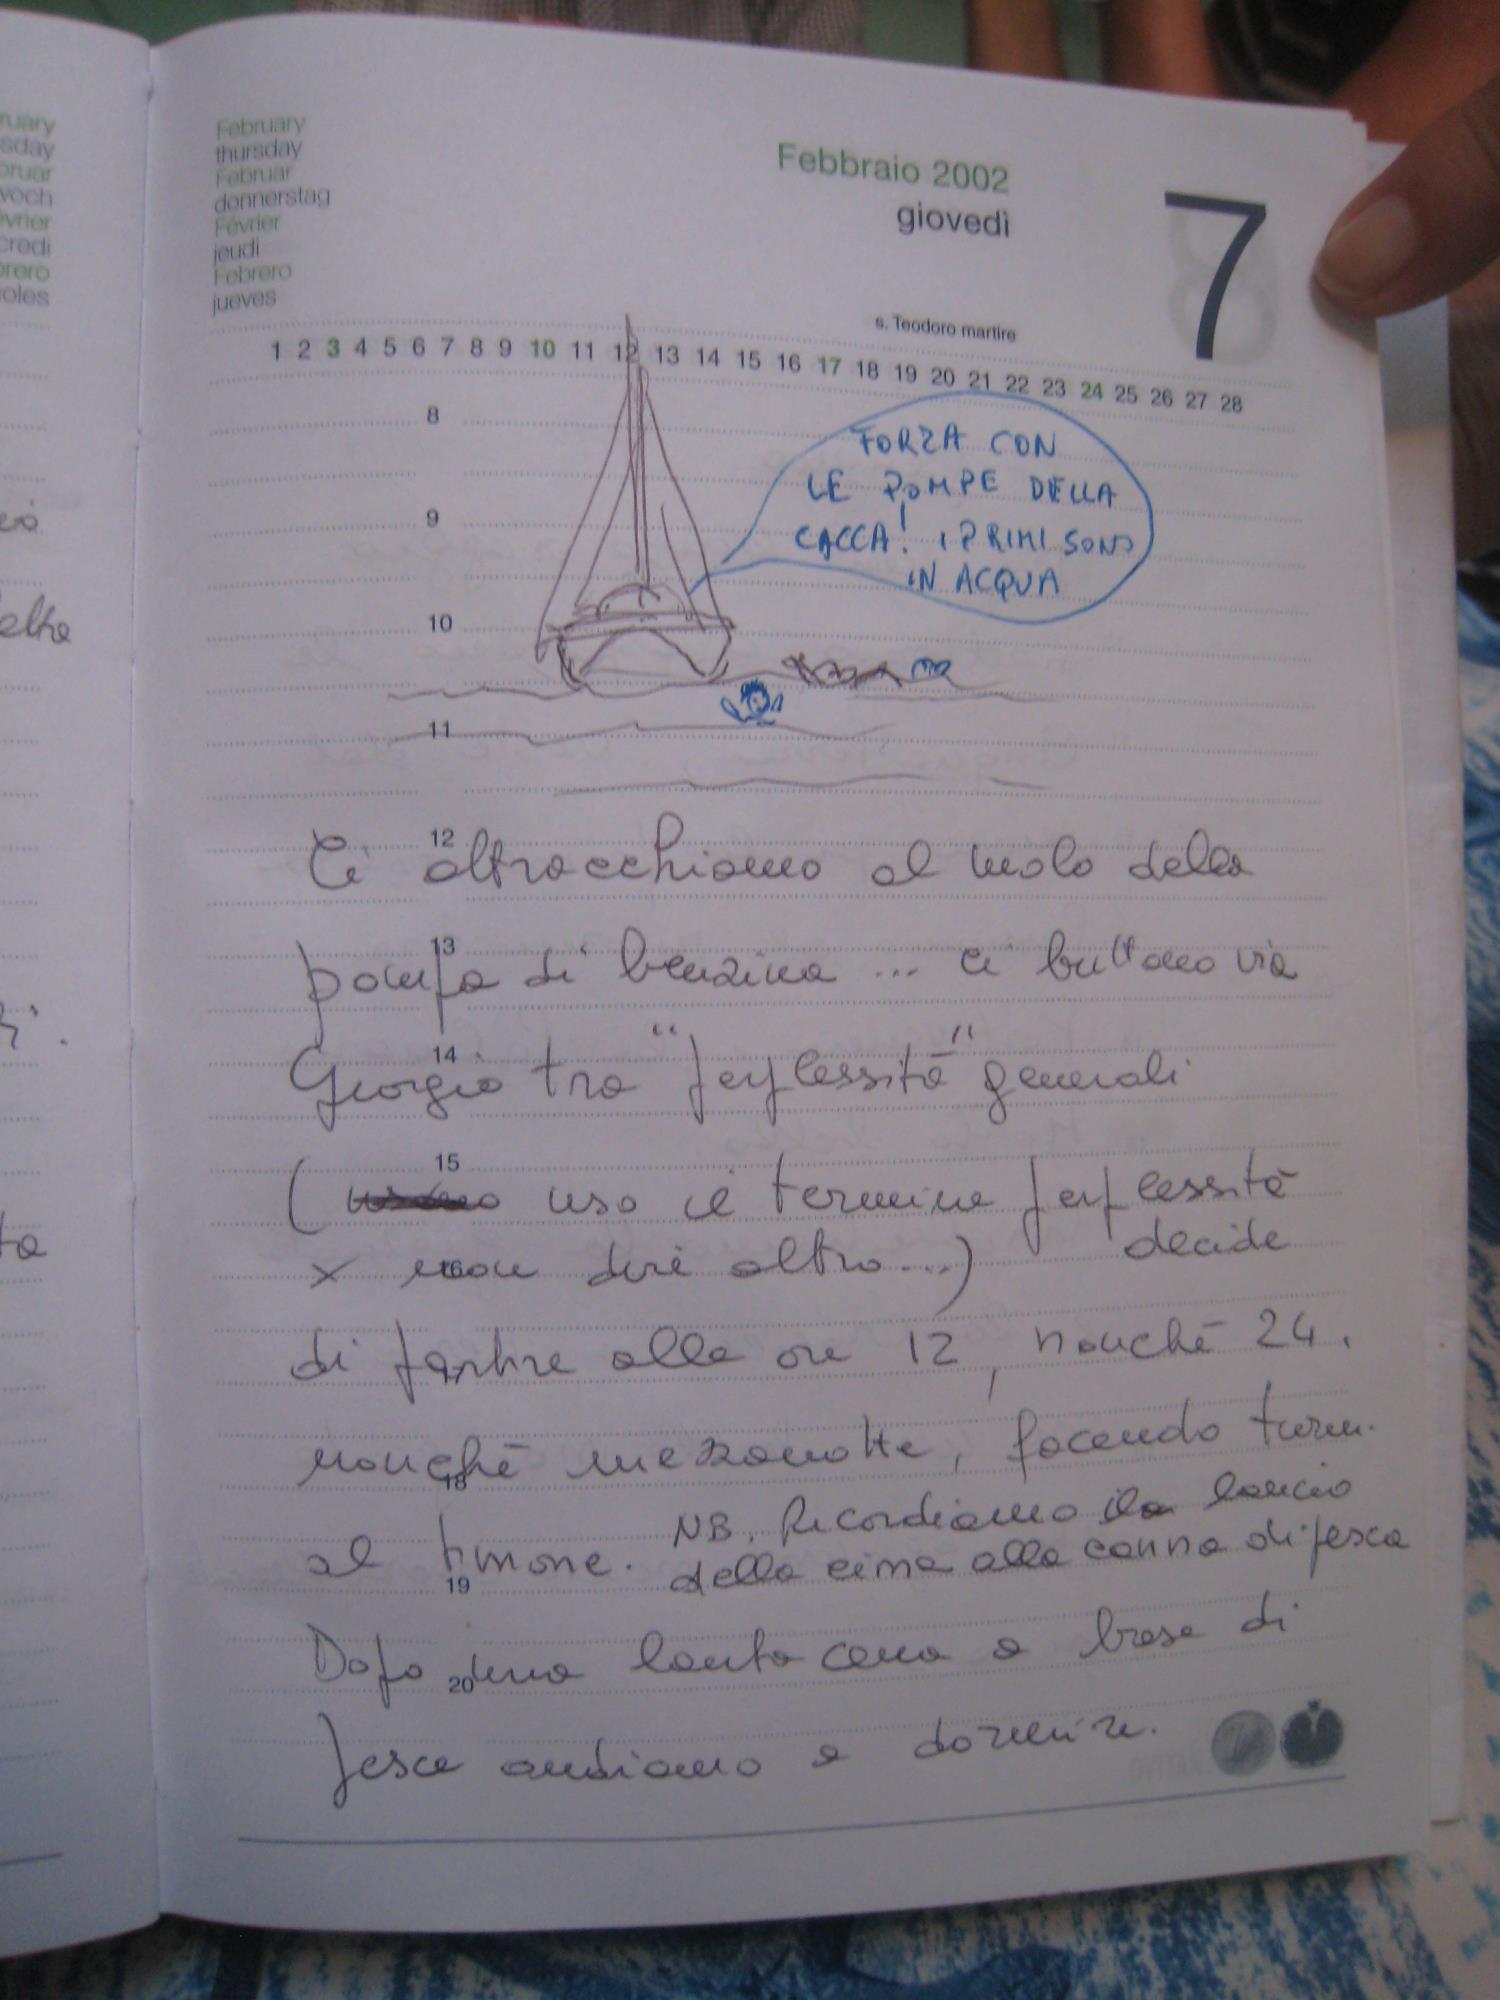 February
thursday
Februar
donnerstag
Février
jeudi
Febrero
jueves
Febbraio 2002
giovedì
7
s. Teodoro martire
1 2 3 4 5 6 7 8 9 10 11 12 13 14 15 16 17 18 19 20 21 22 23 24 25 26 27 28
8
9
10
11
12
13
14
15
16
17
18
19
20
FORZA CON
LE POMPE DELLA
CACCA! I PRIMI SONO
IN ACQUA
Ci attracchiamo al molo della
pompa di benzina ... ci buttano via
Giorgio tra "perplessità" generali
( uso il termine perplessità
x non dire altro...) decide
di partire alle ore 12, nonché 24,
nonché mezzanotte, facendo turni
al timone. NB. Ricordiamo il lancio
della cima alla canna di pesca
Dopo una lauta cena a base di
pesce andiamo a dormire.